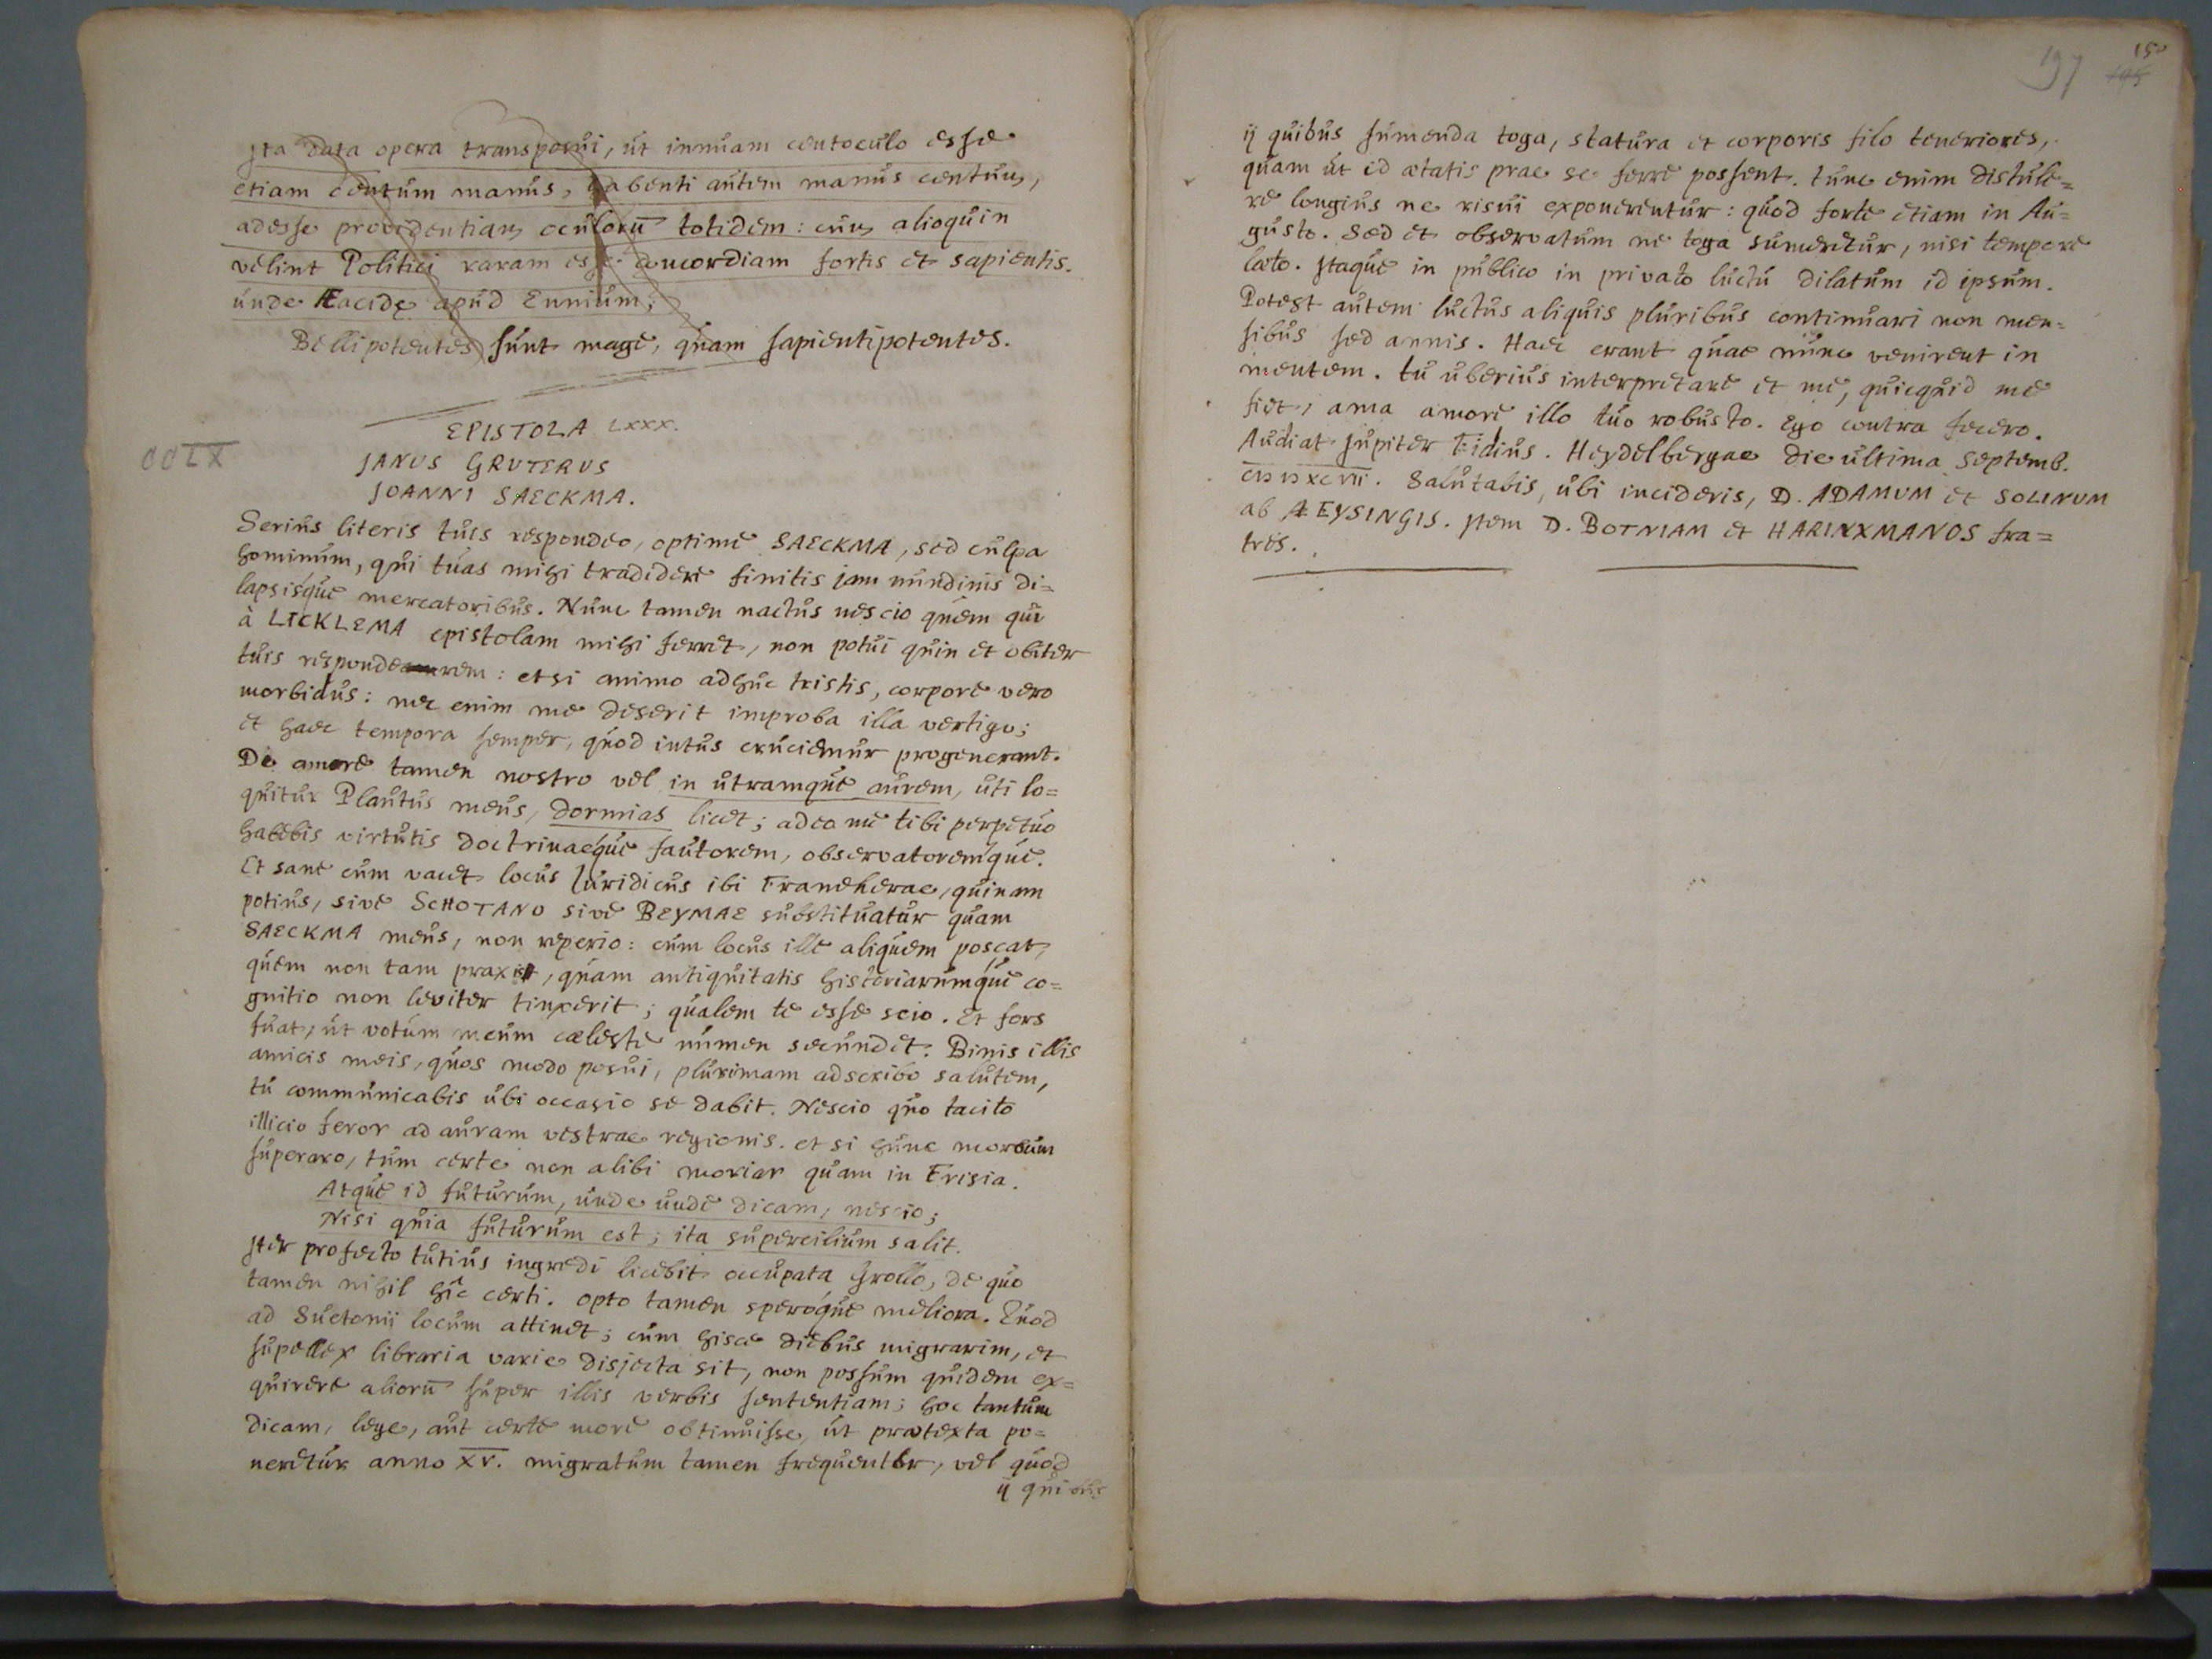 Ita data opera transposui, ut innuam centoculo esse
etiam centum manus, habenti autem manus centum,
adesse providentiam oculorū totidem: cum alioquin
velint Politici raram esse concordiam fortis et sapientis.
unde Æacidę apud Ennium;
Bellipotentes sunt mage, quam sapientipotentes.
EPISTOLA LXXX.
CCLX
JANUS GRUTERUS
JOANNI SAECKMA.
Serius literis tuis respondeo, optime SAECKMA, sed culpa
hominum, qui tuas mihi tradidere finitis jam nundinis di=
lapsisque mercatoribus. Nunc tamen nactus nescio quem qui
à LICKLEMA epistolam mihi ferret, non potui quin et obiter
tuis responderem: etsi animo adhuc tristis, corpore vero
morbidus: nec enim me deserit improba illa vertigo;
et haec tempora semper, quod intus cruciemur progenerant.
De amore tamen nostro vel in utramque aurem, uti lo=
quitur Plautus meus, dormias licet; adeo me tibi perpetuo
habebis virtutis doctrinaeque fautorem, observatoremque.
Et sane cum vacet locus Juridicus ibi Franekerae, quinam
potius, sive SCHOTANO sive BEYMAE substituatur quam
SAECKMA meus, non reperio: cum locus ille aliquem poscat,
quem non tam praxis, quam antiquitatis historiarumque co=
gnitio non leviter tinxerit; qualem te esse scio. Et fors
fuat, ut votum meum cæleste numen secundet. Binis illis
amicis meis, quos modo posui, plurimam adscribo salutem,
tu communicabis ubi occasio se dabit. Nescio quo tacito
illicio feror ad auram vestrae regionis. et si hunc morbum
superaro, tum certe non alibi moriar quam in Frisia.
Atque id futurum, unde unde dicam, nescio;
Nisi quia futurum est; ita supercilium salit.
Iter profecto tutius ingredi licebit occupata Grollo, de quo
tamen nihil hîc certi. opto tamen speroque meliora. Quod
ad Suetonii locum attinet; cum hisce diebus migrarim, et
supellex libraria varie disjecta sit, non possum quidem ex=
quirere aliorū super illis verbis sententiam; hoc tantum
dicam, lege, aut certe more obtinuisse, ut prætexta po=
neretur anno XV. migratum tamen frequenter, vel quod
ij quibus
197 150
ij quibus sumenda toga, statura et corporis filo teneriores,
quam ut id ætatis prae se ferre possent. tunc enim distule=
re longius ne risui exponerentur: quod forte etiam in Au=
gusto. Sed et observatum ne toga sumeretur, nisi tempore
læto. Itaque in publico in privato luctu dilatum id ipsum.
Potest autem luctus aliquis pluribus continuari non men=
sibus sed annis. Haec erant quae nunc venirent in
mentem. tu uberius interpretare et me, quicquid me
fiet, ama amore illo tuo robusto. Ego contra fecero.
Audiat Jupiter Fidius. Heydelbergae die ultima Septemb.
CIↃ IↃ XCVII. Salutabis, ubi incideris, D. ADAMUM et SOLINUM
ab ÆEYSINGIS. Item D. BOTNIAM et HARINXMANOS fra=
tres.